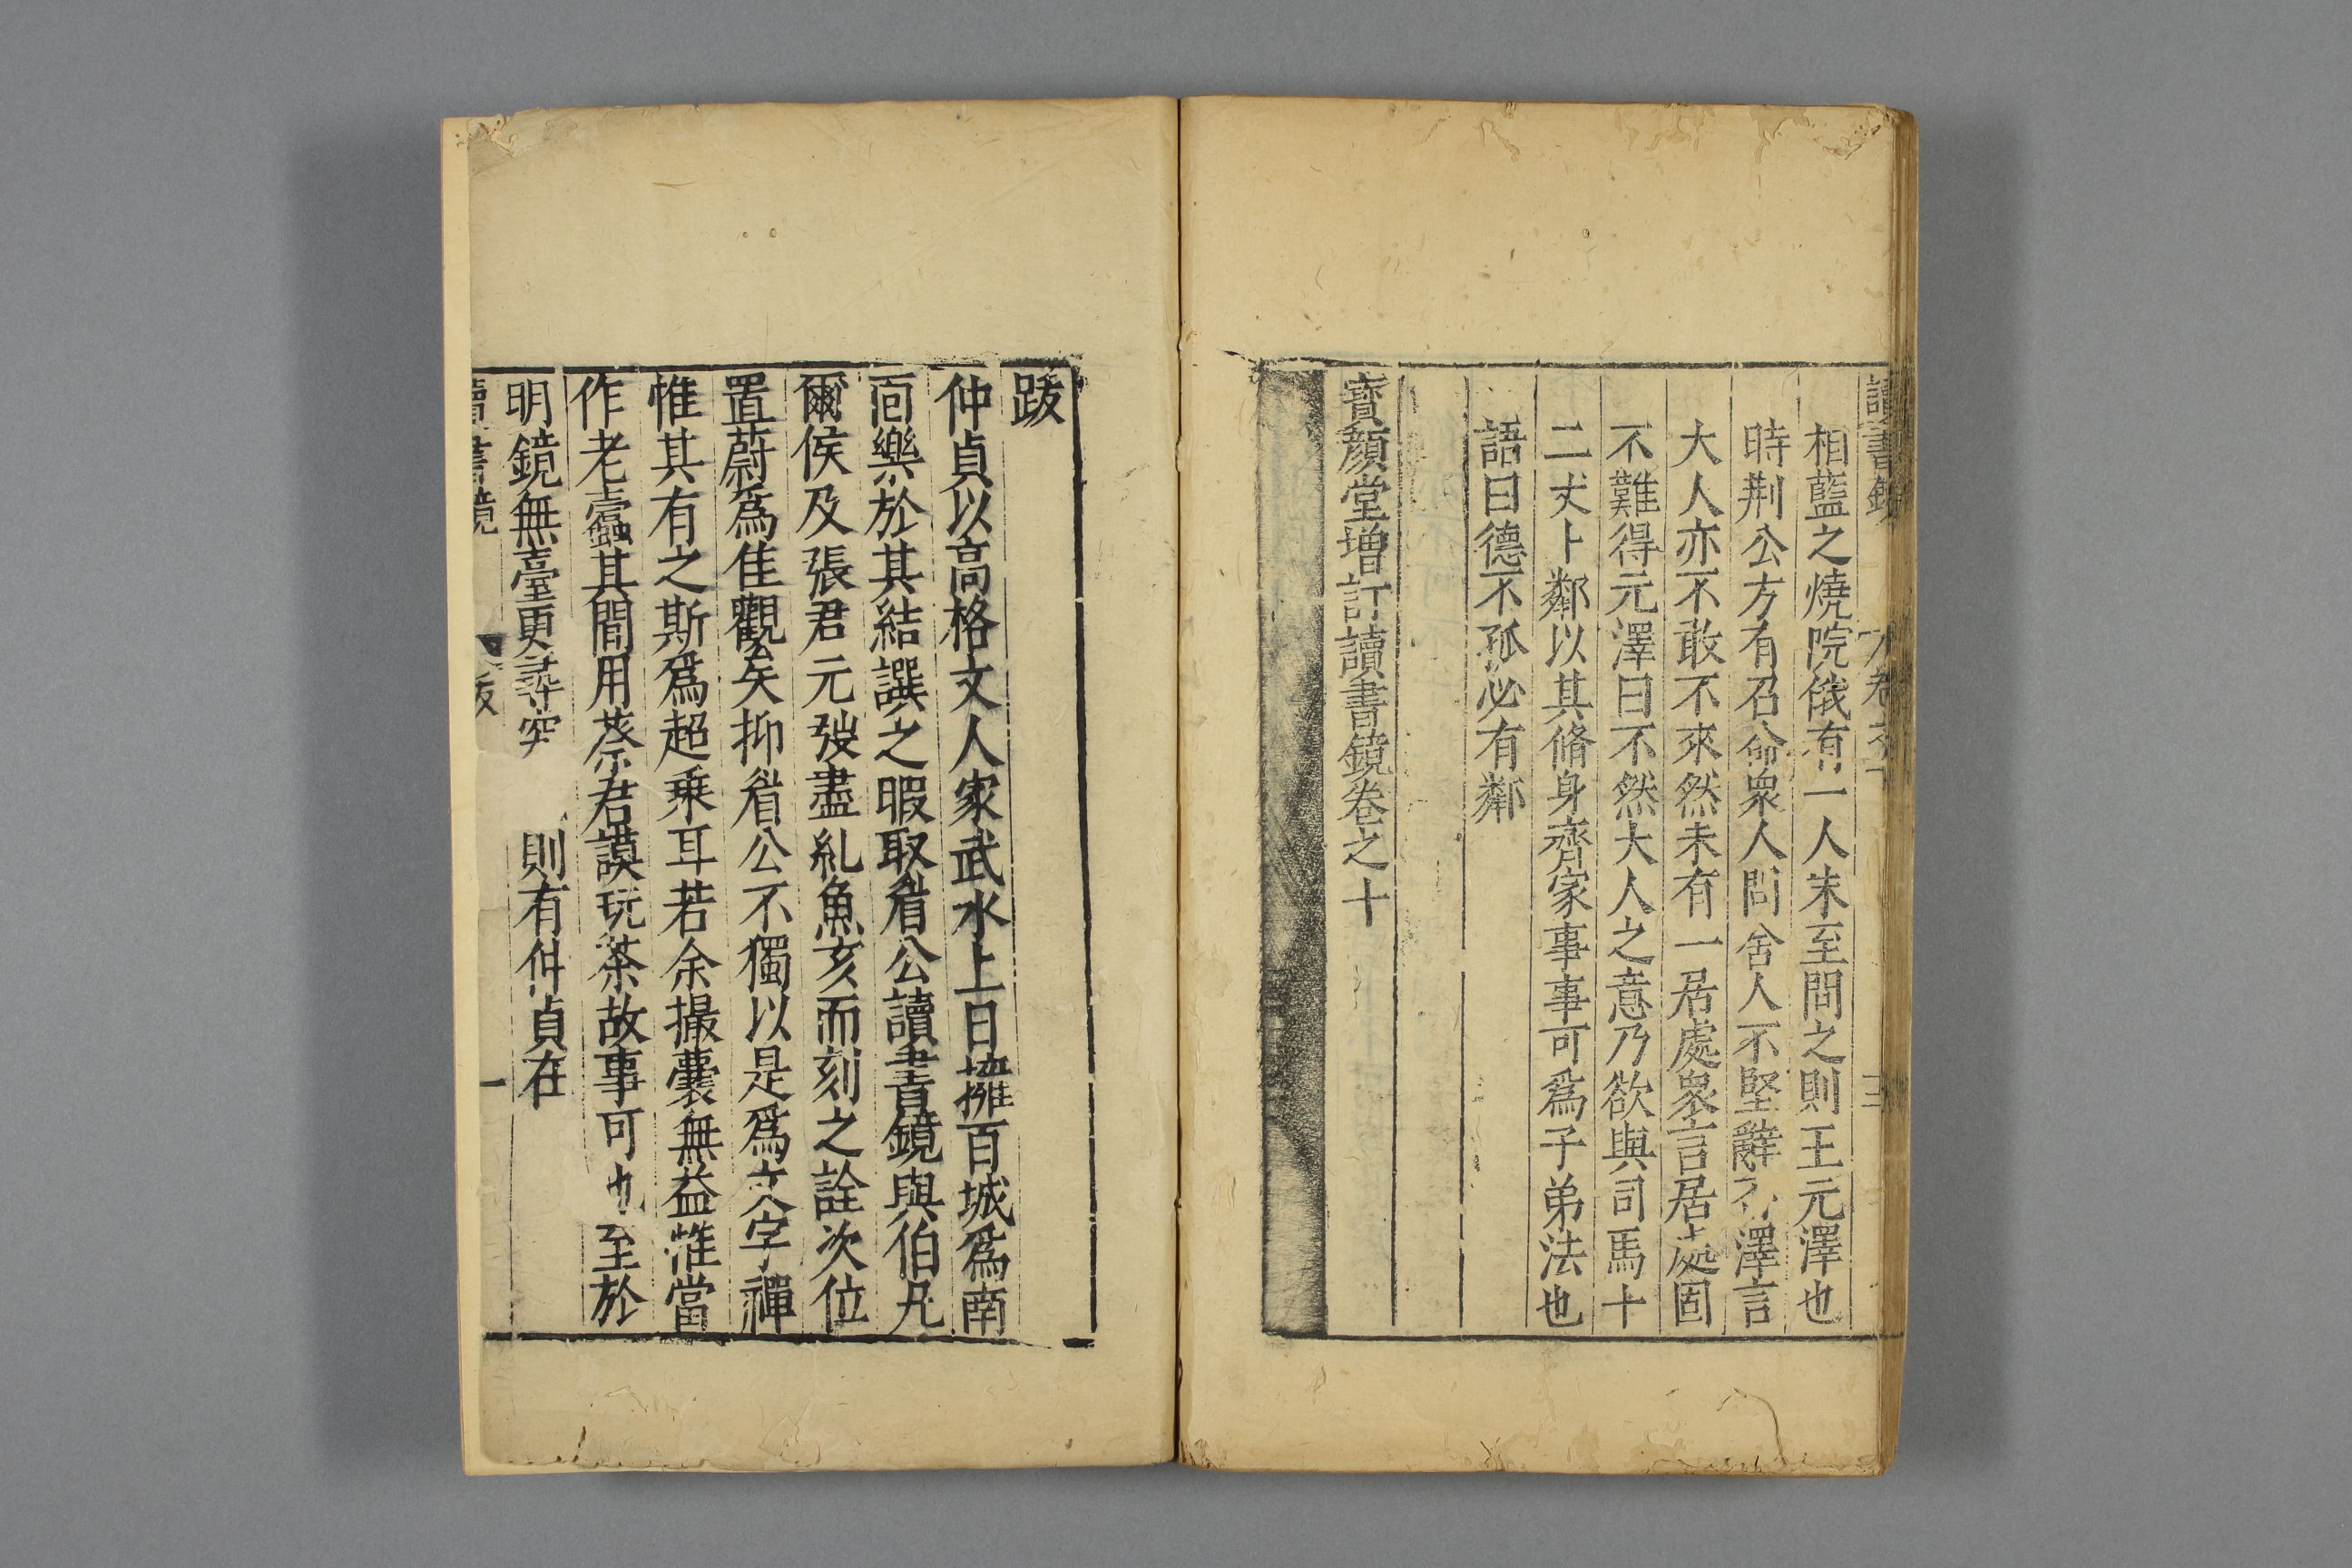 讀書鏡 卷之十
相藍之燒院俄有一人末至問之則王元澤也
時荆公方有召命衆人問舍人不堅辭不澤言
大人亦不敢不來然未有一居處衆言居處固
不難得元澤曰不然大人之意乃欲與司馬十
二丈卜鄰以其脩身齊家事事可爲子弟法也
語曰德不孤必有鄰
寶顏堂增訂讀書鏡卷之十
跋
仲貞以高格文人家武水上日擁百城爲南
面樂於其結譔之暇取眉公讀書鏡與伯凡
爾侯及張君元弢盡糺魚亥而刻之詮次位
置蔚爲佳觀矣抑眉公不獨以是爲文字禪
惟其有之斯爲超乗耳若余撮囊無益惟當
作老蠹其間用蔡君謨玩茶故事可也至於
明鏡無臺更尋突 則有仲貞在
讀書鏡 跋 一